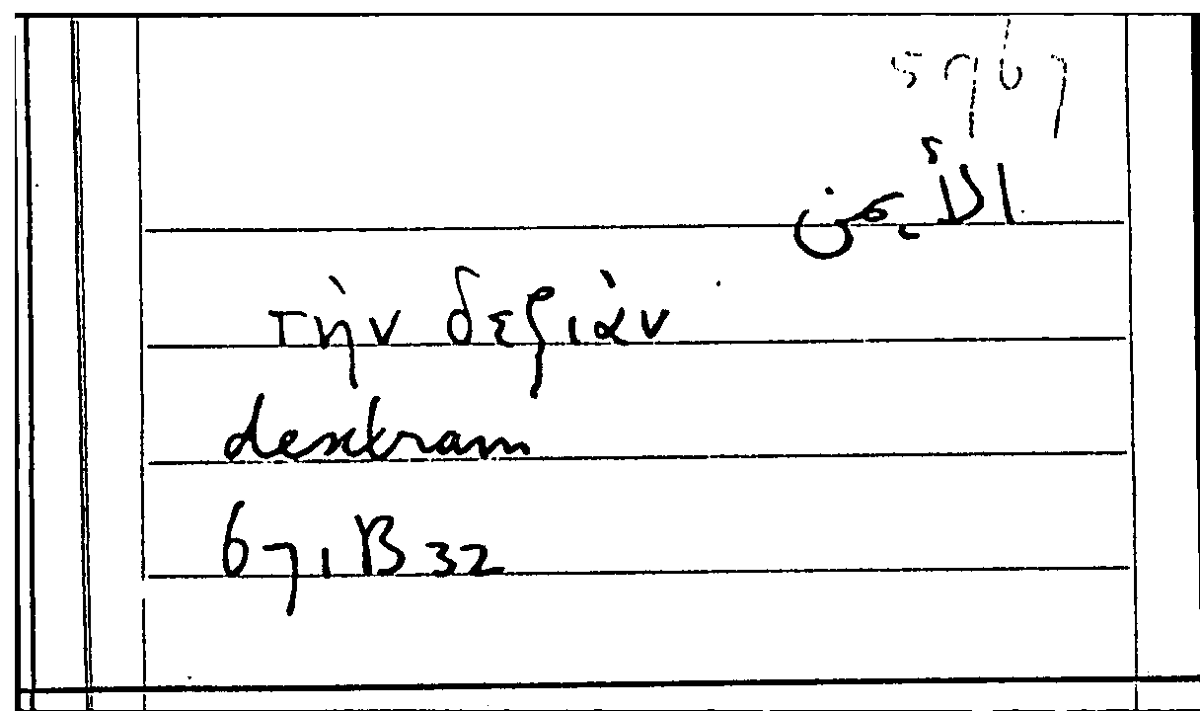 الأيمن
τὴν δεξιὰν
dextram
671 B 32